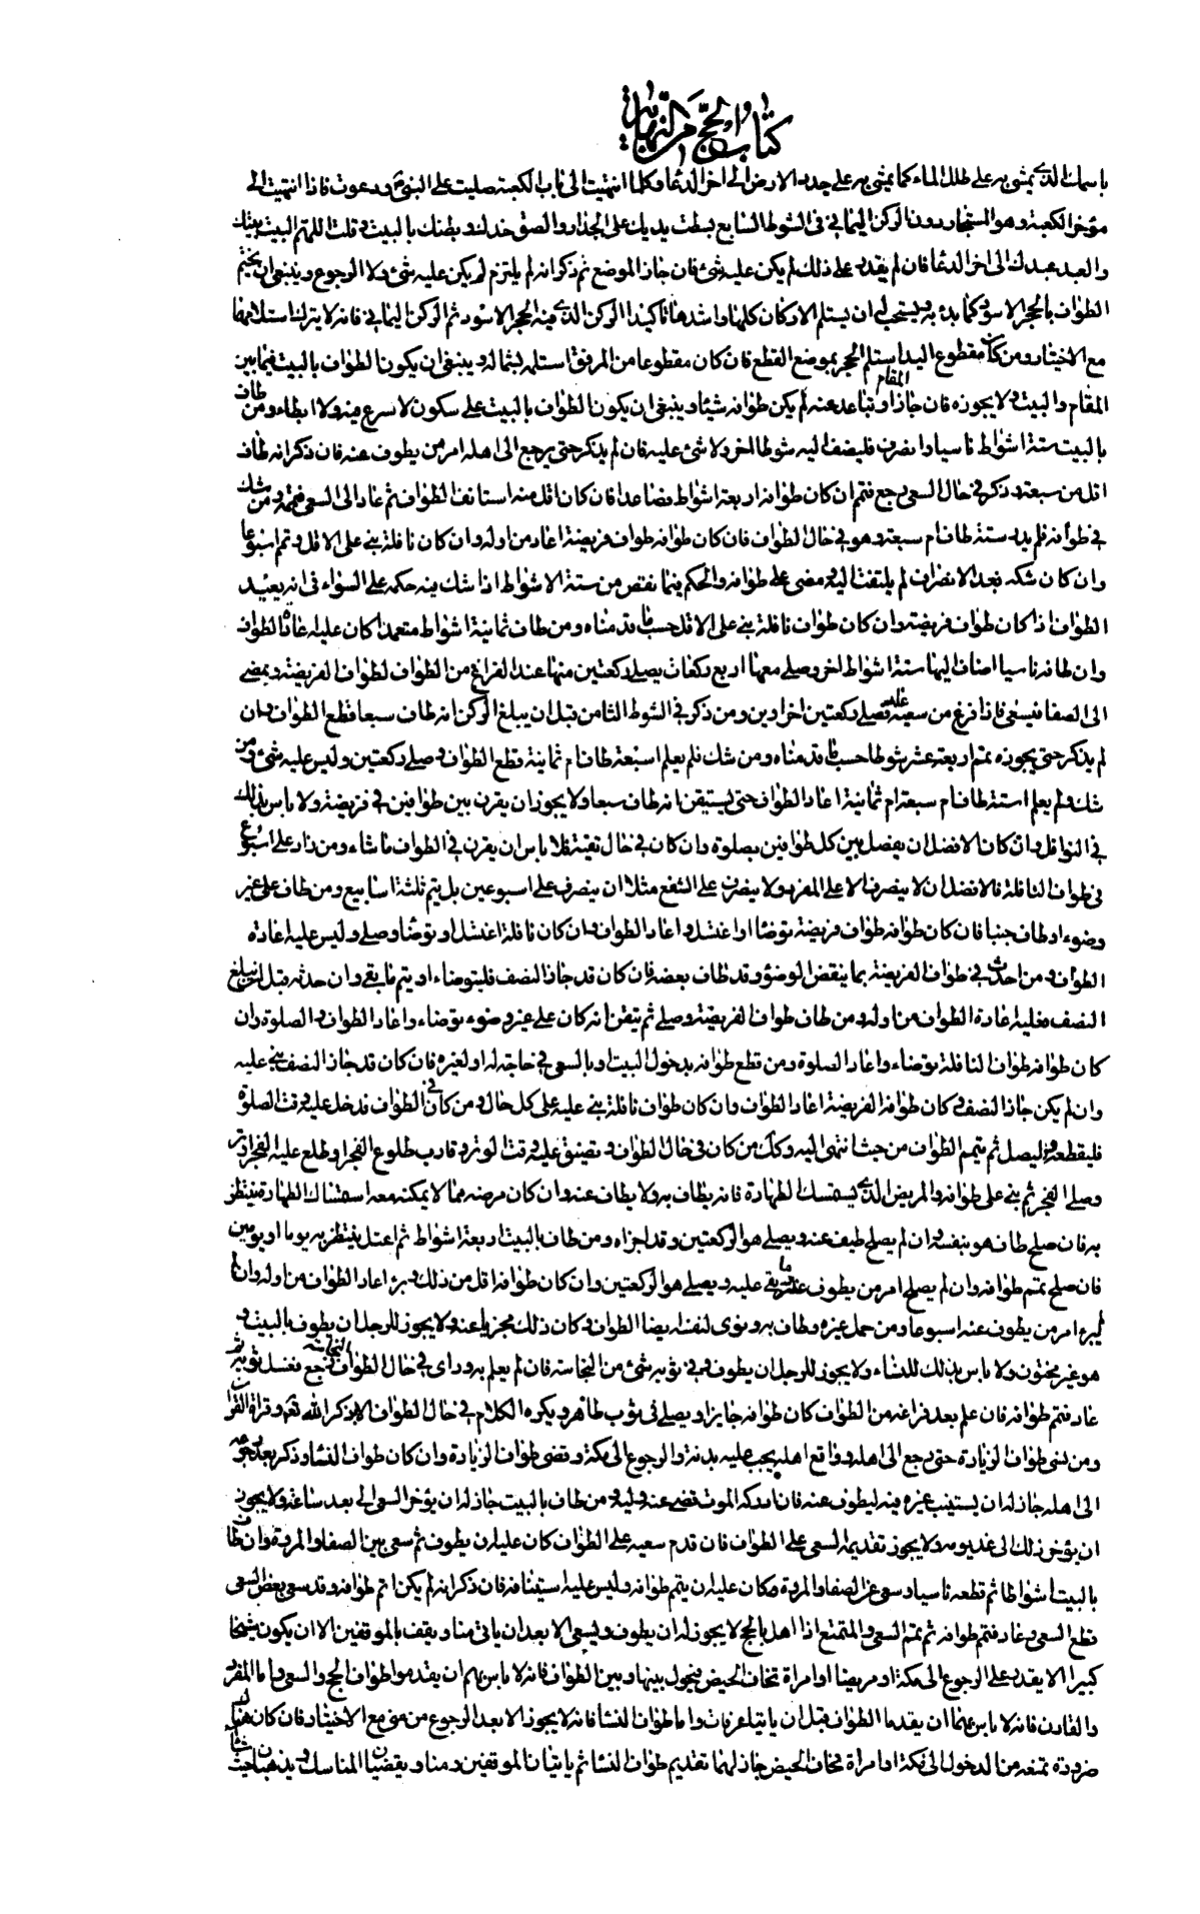 كتاب الحج من النهاية
باسمك الذي يمشى به على ظلل الماء كما يمشى به على جدد الارض الى اخر الدعاء وكلما انتهيت الى باب الكعبة صليت على النبي ودعوت فاذا انتهيت الى
مؤخر الكعبة وهو المستجار دون الركن اليماني في الشوط السابع بسطت يديك على الجدار والصق خدك وبطنك بالبيت وقلت اللهم البيت بيتك
والعبد عبدك الى اخر الدعاء فان لم يقدر على ذلك لم يكن عليه شئ فان جاز الموضع ثم ذكر انه لم يلتزم لم يكن عليه شئ ولا الرجوع وينبغي ان يختم
الطواف بالحجر الاسود كما بدء به ويستحب له ان يستلم الاركان كلها واشدها تاكيدا الركن الذي فيه الحجر الاسود ثم الركن اليماني فانه لا يترك استلامهما
مع الاختيار ومن كان مقطوع اليد استلم الحجر بموضع القطع فان كان مقطوعا من المرفق استلمه بشماله وينبغي ان يكون الطواف بالبيت فيما بين
المقام والبيت ولا يجوزه فان جاز المقام او تباعد عنه لم يكن طوافه شيئا وينبغي ان يكون الطواف بالبيت على سكون لا سرع فيه ولا ابطاء ومن طاف
بالبيت ستة اشواط ناسيا وانصرف فليضف اليه شوطا اخر ولا شئ عليه فان لم يذكر حتى يرجع الى اهله امر من يطوف عنه فان ذكر انه طاف
اقل من سبعة وذكر في حال السعي رجع فتمم ان كان طوافه اربعة اشواط فصاعدا فان كان اقل منه استانف الطواف ثم عاد الى السعي فتممه ومن شك
في طوافه فلم يدر ستة طاف ام سبعة وهو في حال الطواف فان كان طوافه طواف فريضة اعاد من اوله وان كان نافلة بنى على الاقل وتمم اسبوعا
وان كان شكه بعد الانصراف لم يلتفت اليه ومضى على طوافه والحكم فيما نقص من ستة الاشواط اذا شك فيه حكمه على السواء في انه يعيد
الطواف اذا كان طواف فريضة وان كان طواف نافلة بنى على الاقل حسب ما قدمناه ومن طاف ثمانية اشواط متعمدا كان عليه اعادة الطواف
وان طافه ناسيا اضاف اليها ستة اشواط اخر وصلى معها اربع ركعات يصلي ركعتين منها عند الفراغ من الطواف لطواف الفريضة ويمضى
الى الصفا فيسعى فاذا فرغ من سعيه عاد فصلى ركعتين اخراوين ومن ذكر في الشوط الثامن قبل ان يبلغ الركن انه طاف سبعا قطع الطواف وان
لم يذكر حتى يجوزه تمم اربعة عشر شوطا حسب ما قدمناه ومن شك فلم يعلم اسبعة طاف ام ثمانية قطع الطواف وصلى ركعتين وليس عليه شئ ومن
شك ولم يعلم استة طاف ام سبعة ام ثمانية اعاد الطواف حتى يستيقن انه طاف سبعا ولا يجوز ان يقرن بين طوافين في فريضة ولا باس بذلك
في النوافل وان كان الافضل ان يفصل بين كل طوافين بصلوة وان كان في حال تقية فلا باس ان يقرن في الطواف ما شاء ومن زاد على اسبوع
في طواف النافلة فالافضل ان لا ينصرف الا على الفرد ولا ينصرف على الشفع مثلا ان ينصرف على اسبوعين بل يتم ثلثة اسابيع ومن طاف على غير
وضوء او طاف جنبا فان كان طوافه طواف فريضة توضأ او اغتسل واعاد الطواف وان كان نافلة اغتسل او توضأ وصلى وليس عليه اعادة
الطواف ومن احدث في طواف الفريضة بما ينقض الوضوء وقد طاف بعضه فان كان قد جاز النصف فليتوضاء او يتم ما بقي وان حدثه قبل ان يبلغ
النصف فعليه اعادة الطواف من اوله ومن طاف طواف الفريضة وصلى ثم تيقن انه كان على غير وضوء توضاء واعاد الطواف والصلوة وان
كان طوافه طواف النافلة توضاء واعاد الصلوة ومن قطع طوافه بدخول البيت او بالسعي في حاجة له او لغيره فان كان قد جاز النصف بنى عليه
وان لم يكن جاز النصف وكان طوافه الفريضة اعاد الطواف وان كان طواف نافلة بنى عليه على كل حال ومن كان في الطواف فدخل عليه وقت الصلوة
فليقطعه وليصل ثم يتمم الطواف من حيث انتهى اليه وكك من كان في حال الطواف وتضيق عليه وقت الوتر وقارب طلوع الفجر او طلع عليه الفجر اوتر
وصلى الفجر ثم بنى على طوافه والمريض الذي يستمسك الطهارة فانه يطاف به ولا يطاف عنه وان كان مرضه مما لا يمكنه معه استمساك الطهارة ينتظر
به فان صلح طاف هو بنفسه وان لم يصلح طيف عنه ويصلى هو الركعتين وقد اجزاه ومن طاف بالبيت اربعة اشواط ثم اعتل ينتظر به يوما او يومين
فان صلح تمم طوافه وان لم يصلح امر من يطوف عنه ما بقي عليه ويصلي هو الركعتين وان كان طوافه اقل من ذلك وبرء اعاد الطواف من اوله وان لم
يبرء امر من يطوف عنه اسبوعا ومن حمل غيره وطاف به ونوى لنفسه ايضا الطواف وكان ذلك مجزيا عنه ولا يجوز للرجل ان يطوف بالبيت و
هو غير مختون ولا باس بذلك للنساء ولا يجوز للرجل ان يطوف وفي ثوبه شئ من النجاسة فان لم يعلم به وراى في حال الطواف النجاسة رجع فغسل ثوبه ثم
عاد فتمم طوافه فان علم بعد فراغه من الطواف كان طوافه جايزا ويصلي في ثوب طاهر ويكره الكلام في حال الطواف الا بذكر الله تعم وقراءة القران
ومن نسى طواف الزيارة حتى رجع الى اهله وواقع اهله يجب عليه بدنة والرجوع الى مكة وقضى طواف الزيارة وان كان طواف النساء وذكر بعد رجوعه
الى اهله جاز له ان يستنيب غيره فيه ليطوف عنه فان ادركه الموت قضى عنه وليه ومن طاف بالبيت جاز له ان يؤخر السعي الى بعد ساعة ولا يجوز
ان يؤخر ذلك الى غد يومه ولا يجوز تقديم السعي على الطواف فان قدم سعيه على الطواف كان عليه ان يطوف ثم سعى بين الصفا والمروة وان طاف
بالبيت اشواطا ثم قطعه ناسيا وسعى بين الصفا والمروة كان عليه ان يتم طوافه وليس عليه استينافه فان ذكر انه لم يكن اتم طوافه وقد سعى بعض السعي
قطع السعي وعاد فتمم طوافه ثم تمم السعي والمتمتع اذا اهل بالحج لا يجوز له ان يطوف ويسعى الا بعد ان ياتي منا ويقف بالموقفين الا ان يكون شيخا
كبيرا لا يقدر على الرجوع الى مكة او مريضا او امراة تخاف الحيض فيحول بينها وبين الطواف فانه لا باس بهم ان يقدموا طواف الحج والسعي واما المفرد
والقارن فانه لا باس بهما ان يقدما الطواف قبل ان ياتيا عرفات واما طواف النساء فانه لا يجوز الا بعد الرجوع من منى مع الاختيار فان كان هناك
ضرورة تمنعه من الدخول الى مكة او امراة تخاف الحيض جاز لهما تقديم طواف النساء ثم ياتيان الموقفين ومنا ويقضيان المناسك ويذهبان حيث شاءا